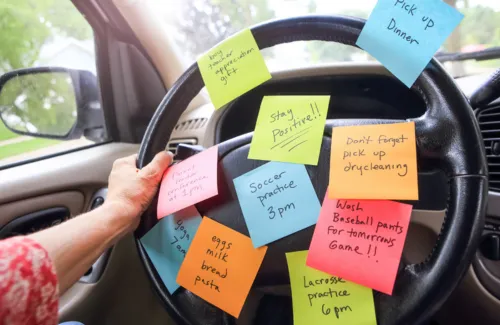 Pick up
Dinner
buy
teacher
appreciation
gift
Stay
Positive!!
Don't forget
pick up
drycleaning
Parent
teacher
conference
at 1 pm
Soccer
practice
3 pm
Wash
Baseball pants
for tomorrows
Game!!
eggs
milk
bread
pasta
Lacrosse
practice
6 pm